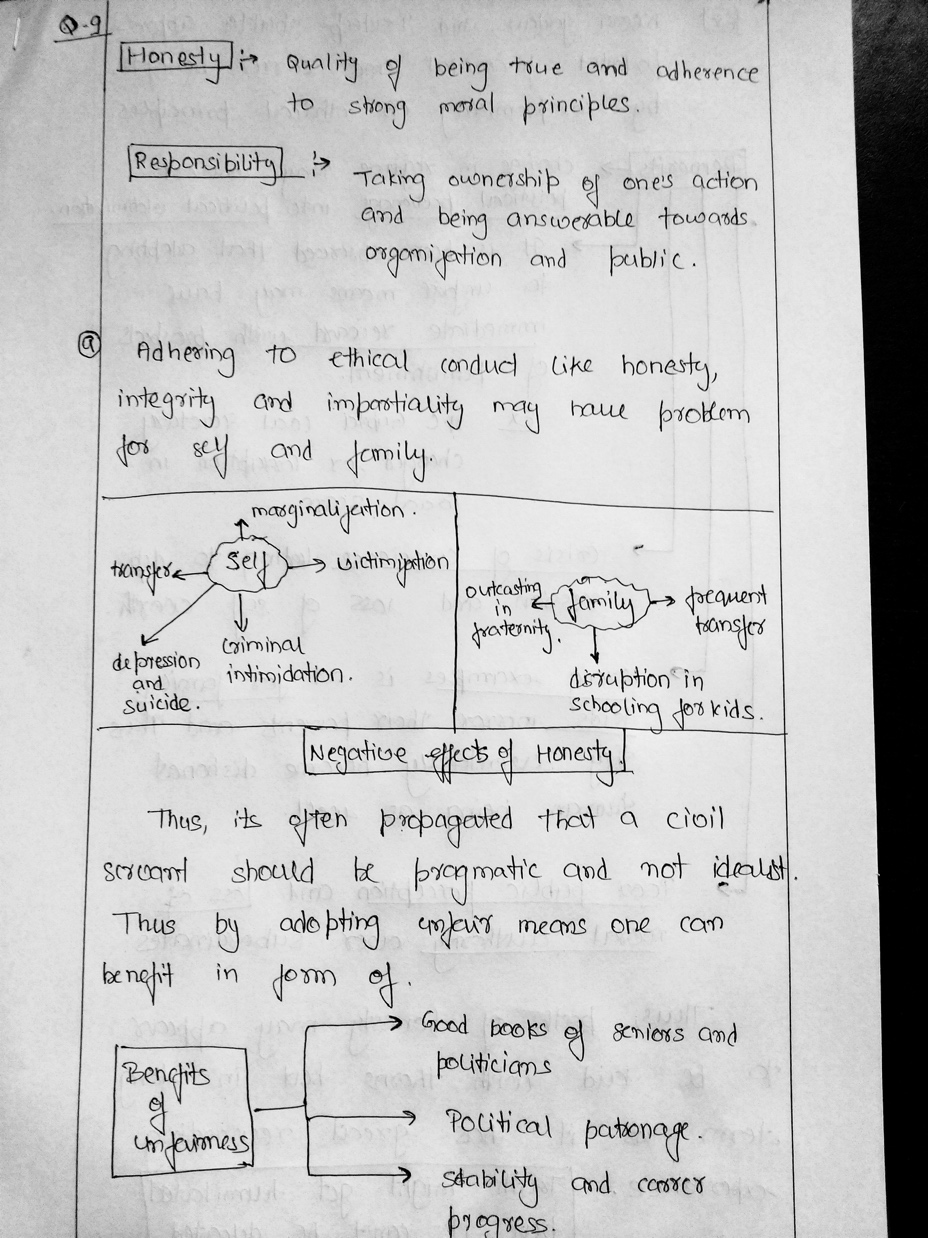 Q-9
Honesty :→ Quality of being true and adherence
to strong moral principles.
Responsibility :→ Taking ownership of one's action
and being answerable towards
organization and public.
(a) Adhering to ethical conduct like honesty,
integrity and impartiality may have problem
for self and family.
marginalization.
self
transfer
victimization
depression
and
suicide.
criminal
intimidation.
outcasting
in
fraternity.
family
frequent
transfer
disruption in
schooling for kids.
Negative effects of Honesty.
Thus, its often propagated that a civil
servant should be pragmatic and not idealist.
Thus by adopting unfair means one can
benefit in form of.
Benefits
of
unfairness
Good books of seniors and
politicians
Political patronage.
stability and career
progress.